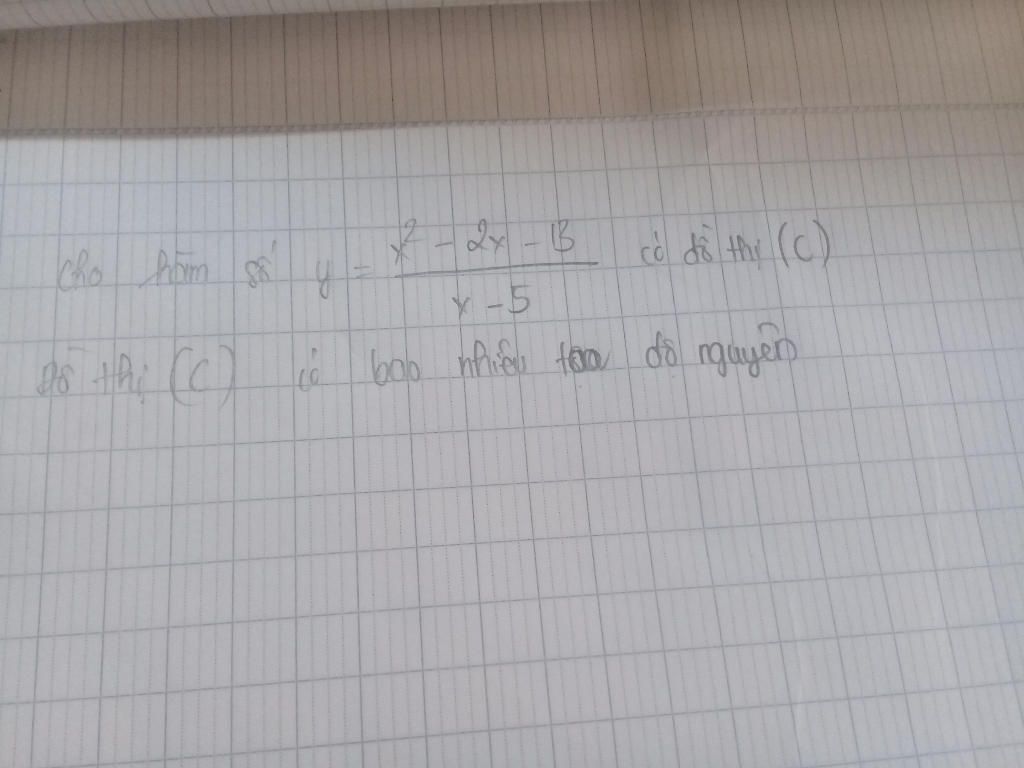 cho hàm số y = \frac{x^2 - 2x - 13}{x - 5} có đồ thị (C)
đồ thị (C) có bao nhiêu toạ độ nguyên